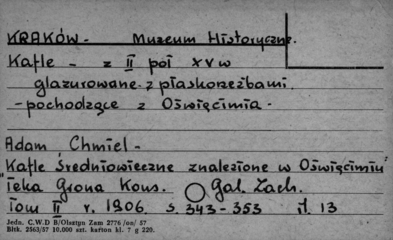 KRAKÓW - Muzeum Historyczne.
Kafle - z II poł XV w
glazurowane z płaskorzeźbami.
- pochodzące z Oświęcimia -
Adam Chmiel -
Kafle średniowieczne znalezione w Oświęcimiu
"Teka Grona Kons. Gal. Zach.
Tom II r. 1906 s. 343-353 il. 13
Jedn. C.W.D B/Olsztyn Zam 2776 /on/ 57
Bltk. 2563/57 10.000 szt. karton kl. 7 g 220.